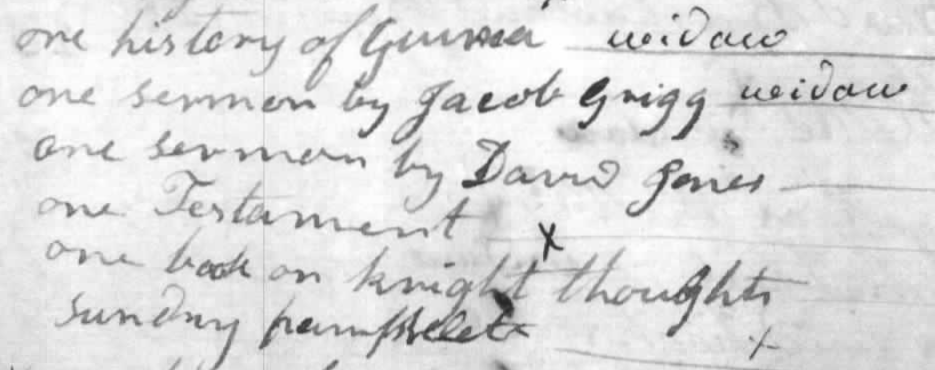 one history of Guinea widow
one sermon by Jacob Grigg widow
one sermon by David Jones
one Testament x
one book on knight thoughts
sundry pamphlets x